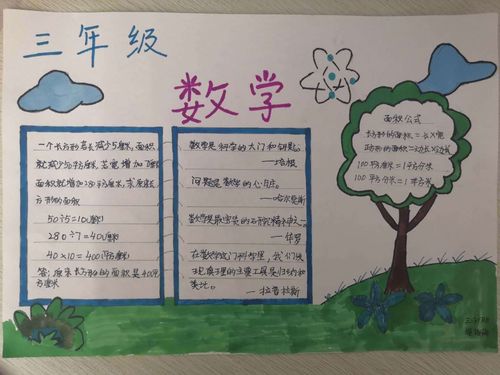 三年级
数学
一个长方形若长减少5厘米，面积
就减少50平方厘米，若宽增加7厘米
面积就增加280平方厘米，求原来长
方形的面积
50÷5=10(厘米)
280÷7=40(厘米)
40×10=400(平方厘米)
答：原来长方形的面积是400平
方厘米
数学是科学的大门和钥匙。
—培根
问题是数学的心脏。
—哈尔莫斯
数学是最宝贵的研究精神之一。
—华罗
在数学的天地里，我们发
现真理的主要工具是归纳和
类比。
—拉普拉斯
面积公式
长方形的面积=长×宽
正方形的面积=边长×边长
100平方厘米=1平方分米
100平方分米=1平方米